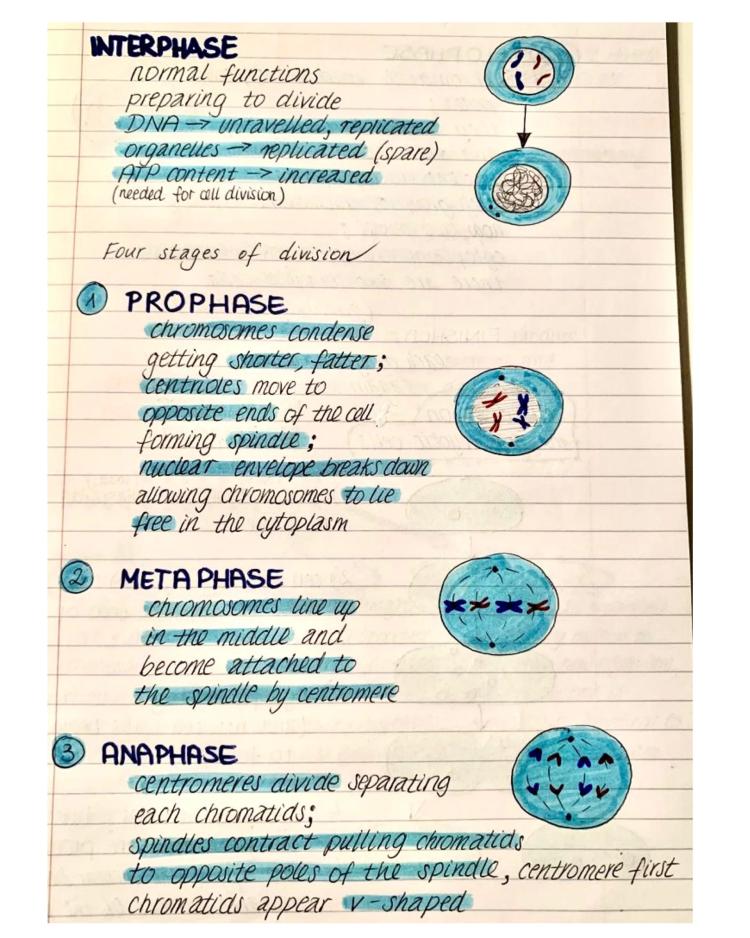 INTERPHASE
normal functions
preparing to divide
DNA → unravelled, replicated
organelles → replicated (spare)
ATP content → increased
(needed for cell division)
Four stages of division
1 PROPHASE
chromosomes condense
getting shorter, fatter;
centrioles move to
opposite ends of the cell
forming spindle;
nuclear envelope breaks down
allowing chromosomes to lie
free in the cytoplasm
2 METAPHASE
chromosomes line up
in the middle and
become attached to
the spindle by centromere
3 ANAPHASE
centromeres divide separating
each chromatids;
spindles contract pulling chromatids
to opposite poles of the spindle, centromere first
chromatids appear v-shaped